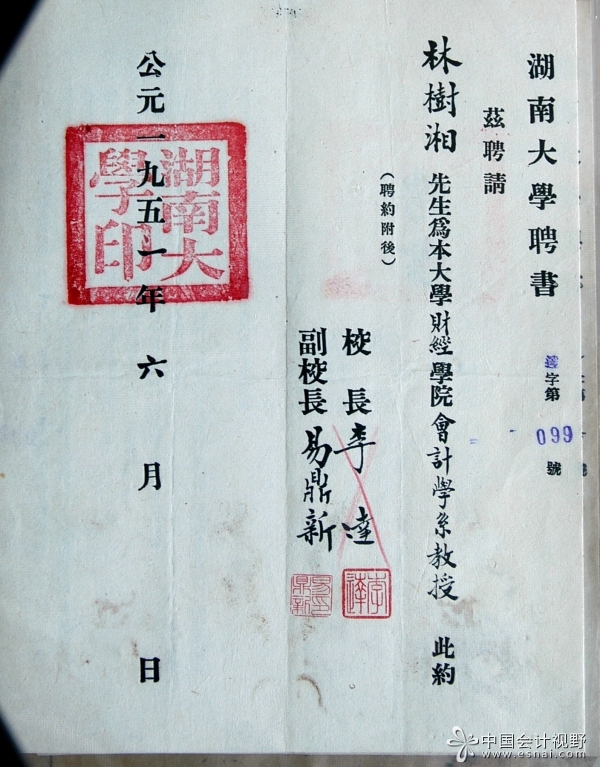 湖南大學聘書
字第 099 號
茲聘請
林樹湘 先生爲本大學財經學院會計學系教授 此約
(聘約附後)
校長 李達
副校長 易鼎新
李達
易鼎新
公元一九五一年六月 日
湖南大學印
中国会计视野
www.esnai.com